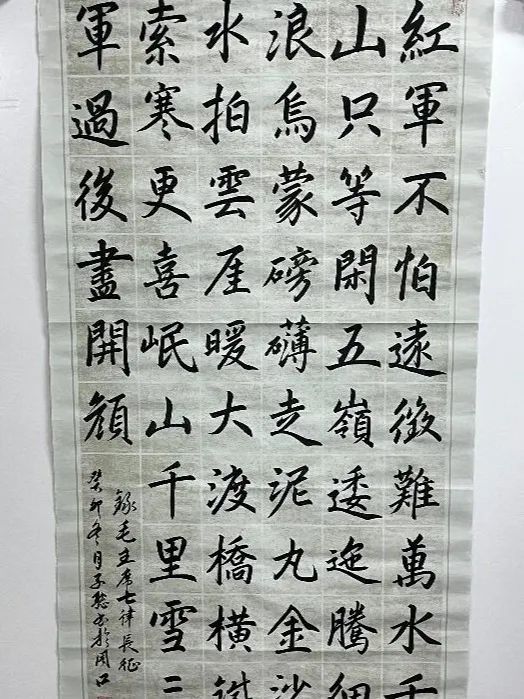 紅軍不怕遠徵難萬水千
山只等閑五嶺逶迤騰細
浪烏蒙磅礴走泥丸金沙
水拍雲厓暖大渡橋橫鐵
索寒更喜岷山千里雪三
軍過後盡開顔
錄毛主席七律長征
癸卯冬月子書於周口